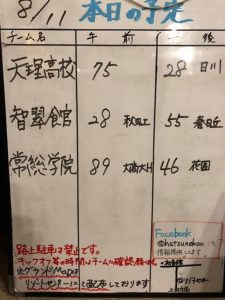 8/11 本日の予定
チーム名 午前 午後
天理高校 75 28 日川
智翠館 28 秋田工 55 春日丘
常総学院 89 大商大H 46 花園
路上駐車は禁止です。
キックオフ等の時間はチームに確認願います。
※グラウンドMapは
リゾートセンターにて配布しております
Facebook
@hatsunekan
情報発信してます